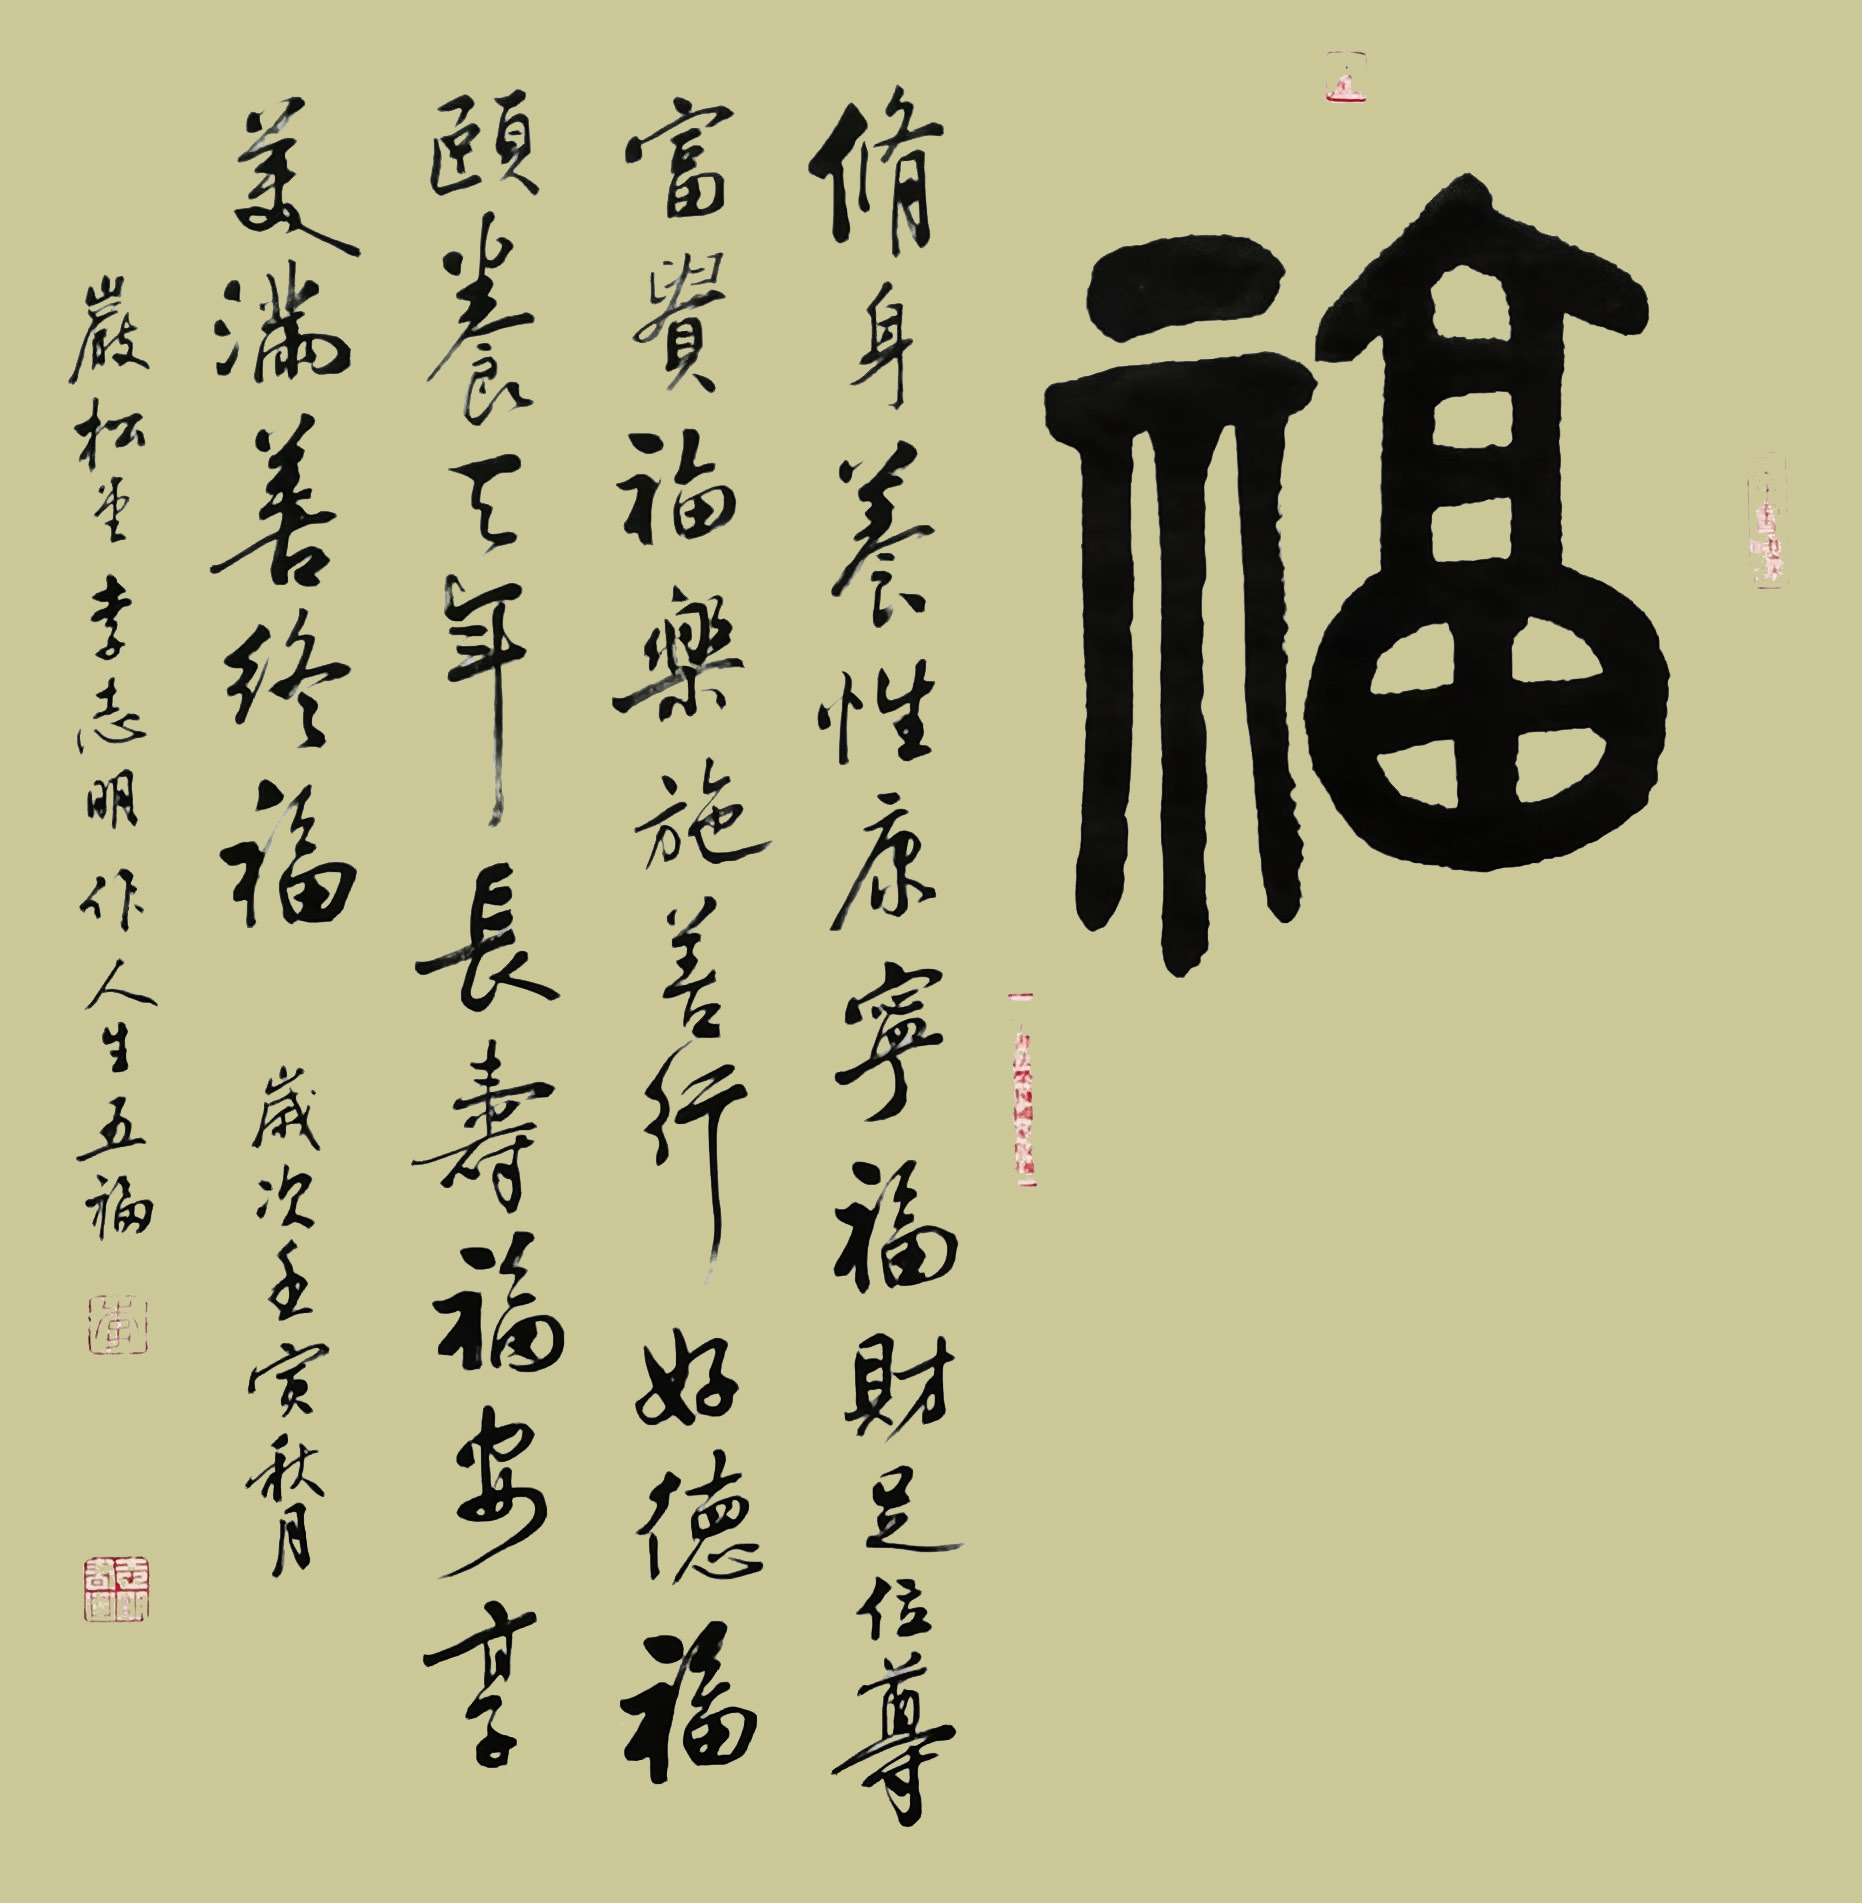 福
脩身養性康寧福財足位尊
富貴福樂施善行好德福
頤養天年長壽福安享
美滿善終福 歲次壬寅秋月
嚴松堂李志明作人生五福